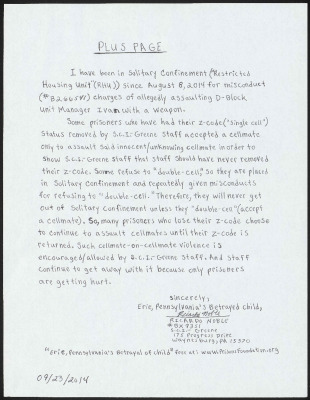 PLUS PAGE
I have been in Solitary Confinement (Restricted
Housing Unit (RHU)) since August 8, 2014 for misconduct
charges of allegedly assaulting D-Block
Unit Manager Ivan with a weapon.
Some prisoners who have had their z-code ("single cell")
status removed by S.C.I.-Greene Staff accepted a cellmate
only to assault said innocent/unknowing cellmate in order to
show S.C.I.-Greene staff that staff should have never removed
their z-code. Some refuse to "double-cell", so they are placed
in Solitary Confinement and repeatedly given misconducts
for refusing to "double-cell." Therefore, they will never get
out of Solitary Confinement unless they "double-cell" (accept
a cellmate). So, many prisoners who lose their z-code choose
to continue to assault cellmates until their z-code is
returned. Such cellmate-on-cellmate violence is
encouraged/allowed by S.C.I.-Greene Staff. And staff
continue to get away with it because only prisoners
are getting hurt.
Sincerely,
Erie, Pennsylvania's Betrayed Child,
Ricardo Noble
RICARDO NOBLE
S.C.I.-Greene
175 Progress Drive
Waynesburg, PA 15370
"Erie, Pennsylvania's Betrayal of Child" free at: www.PrisonsFoundation.org
09/23/2014